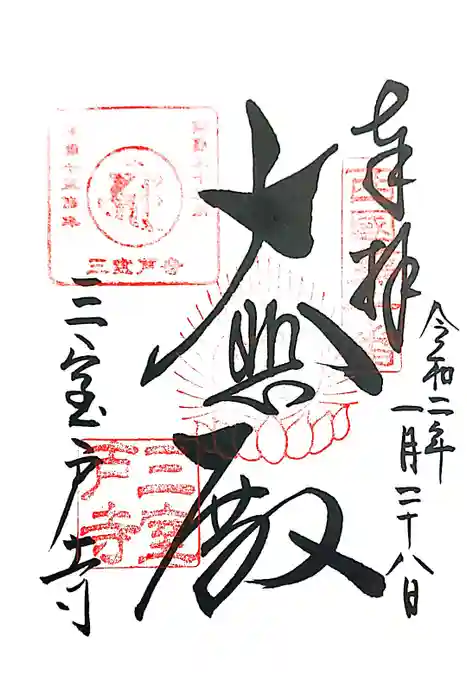 奉拝
令和二年
一月二十八日
大悲殿
三室戸寺
三室戸寺
三室戸寺